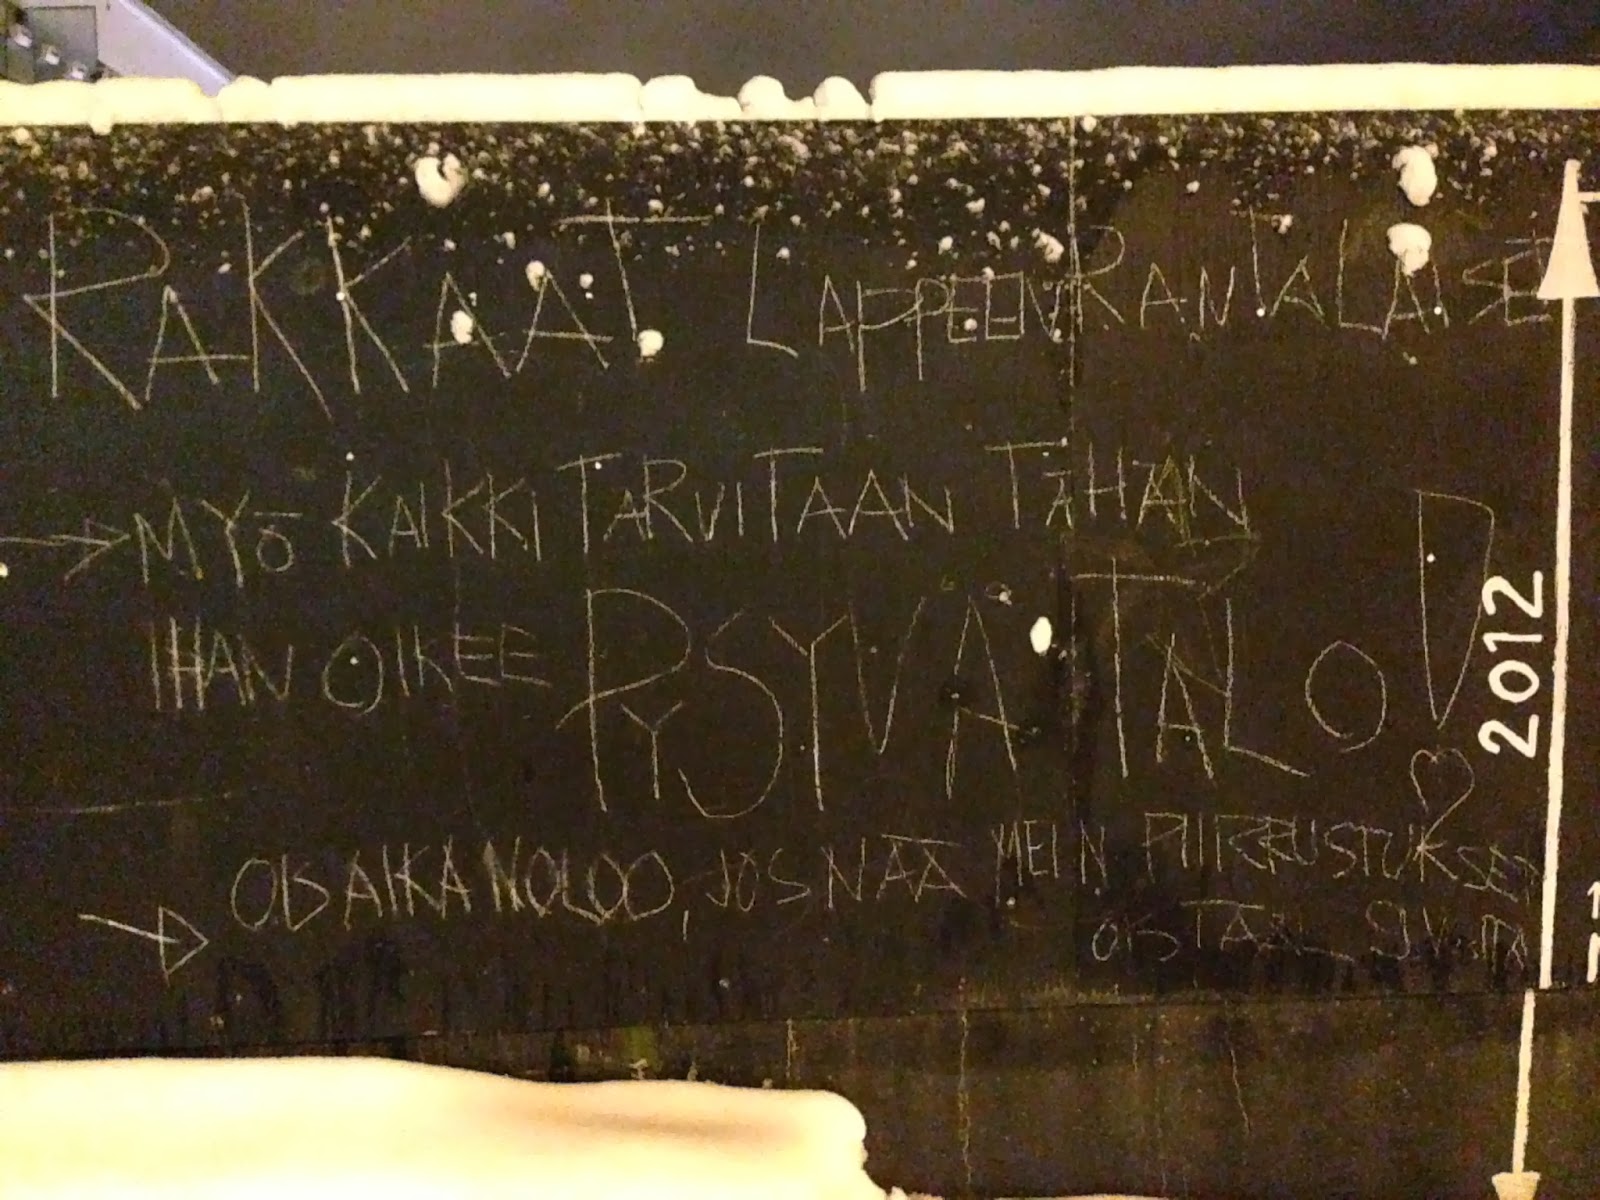 RAKKAAT LAPPEENRANTALAISET
→ MYÖ KAIKKI TARVITAAN TÄHÄN
IHAN OIKEE PYSYVÄ TALO!
♡
→ OIS AIKA NOLOO, JOS NÄÄ MEIN PIIRRUSTUKSET
OIS TÄÄL
2012